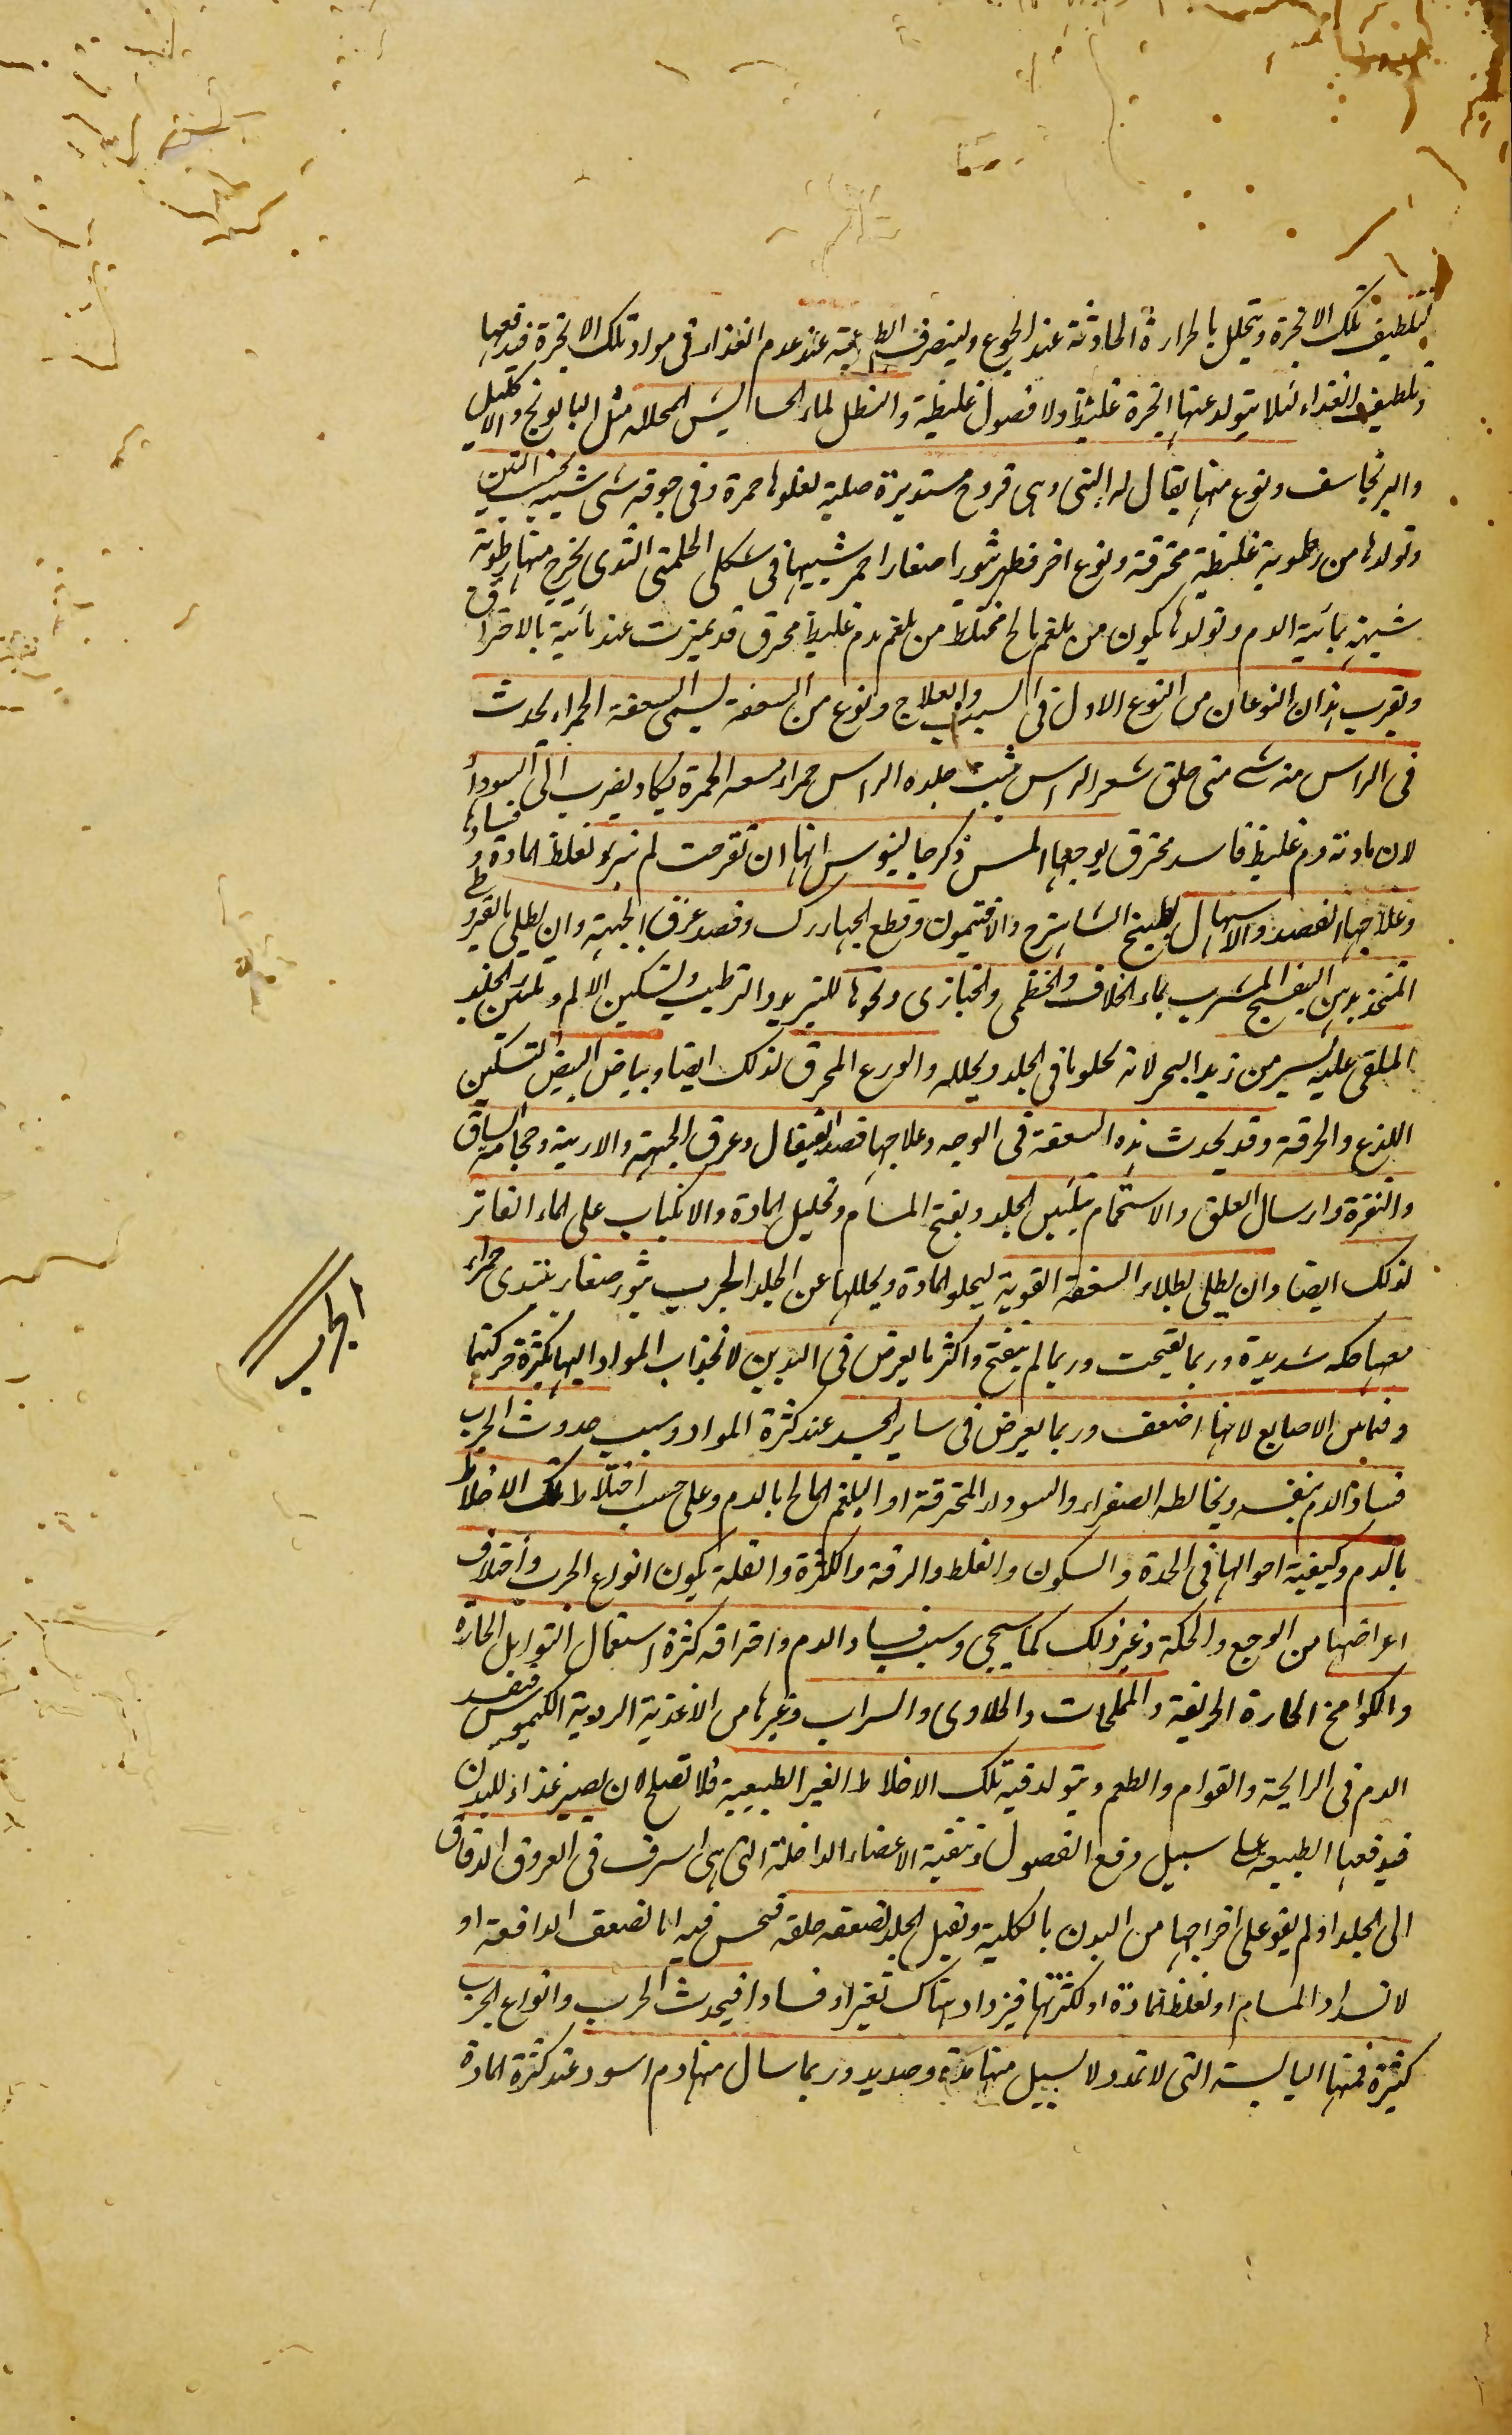 لتلطيف تلك الابخرة ويتحلل بالحرارة الحادثة عند الجوع وليتصرف الطبيعة عند عدم الغذاء فى مواد تلك الابخرة فيدفعها
وتلطيف الغذاء لئلا يتولد عنها ابخرة غليظة ولا فضول غليظة والنطل بماء الحشايش المحللة مثل البابونج والاكليل
والبرنجاسف ونوع منها يقال له التينى وهى قروح مستديرة صلبة تعلوها حمرة وفى جوفه شى شبيه بحب التين
وتولدها من رطوبة غليظة محترقة ونوع اخر فطهر بثور اصغارا حمر شبيهة فى شكل الحلمتى الثدى يخرج منها رطوبة
شبيهة بمائية الدم وتولدها يكون من بلغم مالح مختلط من بلغم بدم غليظ محرق قد تميزت عند مائية بالاحتراق
ويقرب هذان النوعان من النوع الاول فى السبب والعلاج ونوع من السعفة يسمى السعفة الحمراء يحدث
فى الراس منه شى متى حلق شعر الراس جلده الراس حمراء الحمرة يكاد يضرب الى السوداء
لان مادته دم غليظ فاسد محترق يوجعها المس ذكر جالينوس انها ان تقرحت لم تبر لغلظ المادة وفسادها
وعلاجها الفصد والاسهال بطبيخ الشاهترج والافتيمون وقطع الجهاررك وفصد عرق الجبهة وان يطلى بالقيروطى
المتخذ بدهن البنفسج المشرب بماء الخلاف والخطمى والخبازى ونحوها للتبريد والترطيب وتسكين الالم وتليين الجلد
الملقى عليه يسير من زبد البحر لانه يحلو ما فى الجلد ويحلله والورع المحرق لذلك ايضا وبياض البيض لتسكين
اللذع والحرقة وقد يحدث هذه السعفة فى الوجه وعلاجها فصد القيفال وعرق الجبهة والارنبة وحجامة الساق
والنقرة وارسال العلق والاستحمام بتليين الجلد ويفتح المسام وتحليل المادة والانكباب على الماء الفاتر
لذلك ايضا وان يطلى بطلاء السعفة القوية ليجلو المادة ويحللها عن الجلد الجرب بثور صغار تبتدى حمراء
معها حكه شديدة وربما تقيحت وربما لم يتقيح واكثر ما يعرض فى اليدين لانجذاب المواد اليها بكثرة حركتها
وفما بين الاصابع لانها اضعف وربما يعرض فى ساير الجسد عند كثرة المواد وسبب حدوث الجرب
الجرب
فساد الدم بنفسه ويخالطه الصفراء والسوداء المحترقة او البلغم المالح بالدم وعلى حسب اختلاط تلك الاخلاط
بالدم وكيفية احوالها فى الحدة والسكون والغلظ والرقة والكثرة والقلة يكون انواع الجرب واختلاف
اعراضها من الوجع والحكة وغير ذلك كما سيجى وسبب فساد الدم واحتراقه كثرة استعمال التوابل الحارة
والكوامخ الحارة الحريفة والمملحات والحلاوى والشراب وغيرها من الاغذية الردية الكيموس فيفسد
الدم فى الرايحة والقوام والطعم ويتولد فيه تلك الاخلاط الغير الطبيعية فلا تصلح لان يصير غذاء للبدن
فيدفعها الطبيعه على سبيل دفع الفضول وتنقية الاعضاء الداخلة التى هى اشرف فى العروق الدقاق
الى الجلد او لم يقو على اخراجها من البدن بالكلية وتقبل الجلد لضعفه خلقه فتحبس فيه اما لضعف الدافعة او
لانسداد المسام او لغلظ المادة او لكثرتها فيزداد هناك تغيرا وفسادا فيحدث الجرب وانواع الجرب
كثيرة فمنها اليابسة التى لا تمد ولا يسيل منها مدة وصديد وربما سال منها دم اسود عند كثرة المادة